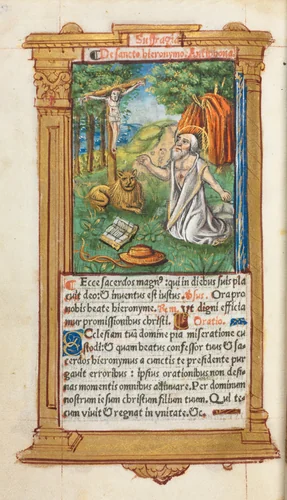 Suffragia
De sancto hieronymo. Antiphona.
Ecce sacerdos magn⁹: qui in diebus suis pla
cuit deo: & inuentus est iustus. Vsus. Ora pro
nobis beate hieronyme. Rem. vt digni efficia
mur promissionibus christi. Oratio.
Ecclesiam tuā domine pia miseratione cu
stodi: & quam beatus confessor tuus & sa
cerdos hieronymus a cunctis te presidente pur
gauit erroribus: ipsius orationibus non desi
nas momentis omnibus adiuuare. Per dominum
nostrum iesum christum filium tuum. Qui tecum
cum viuit & regnat in vnitate. &c.